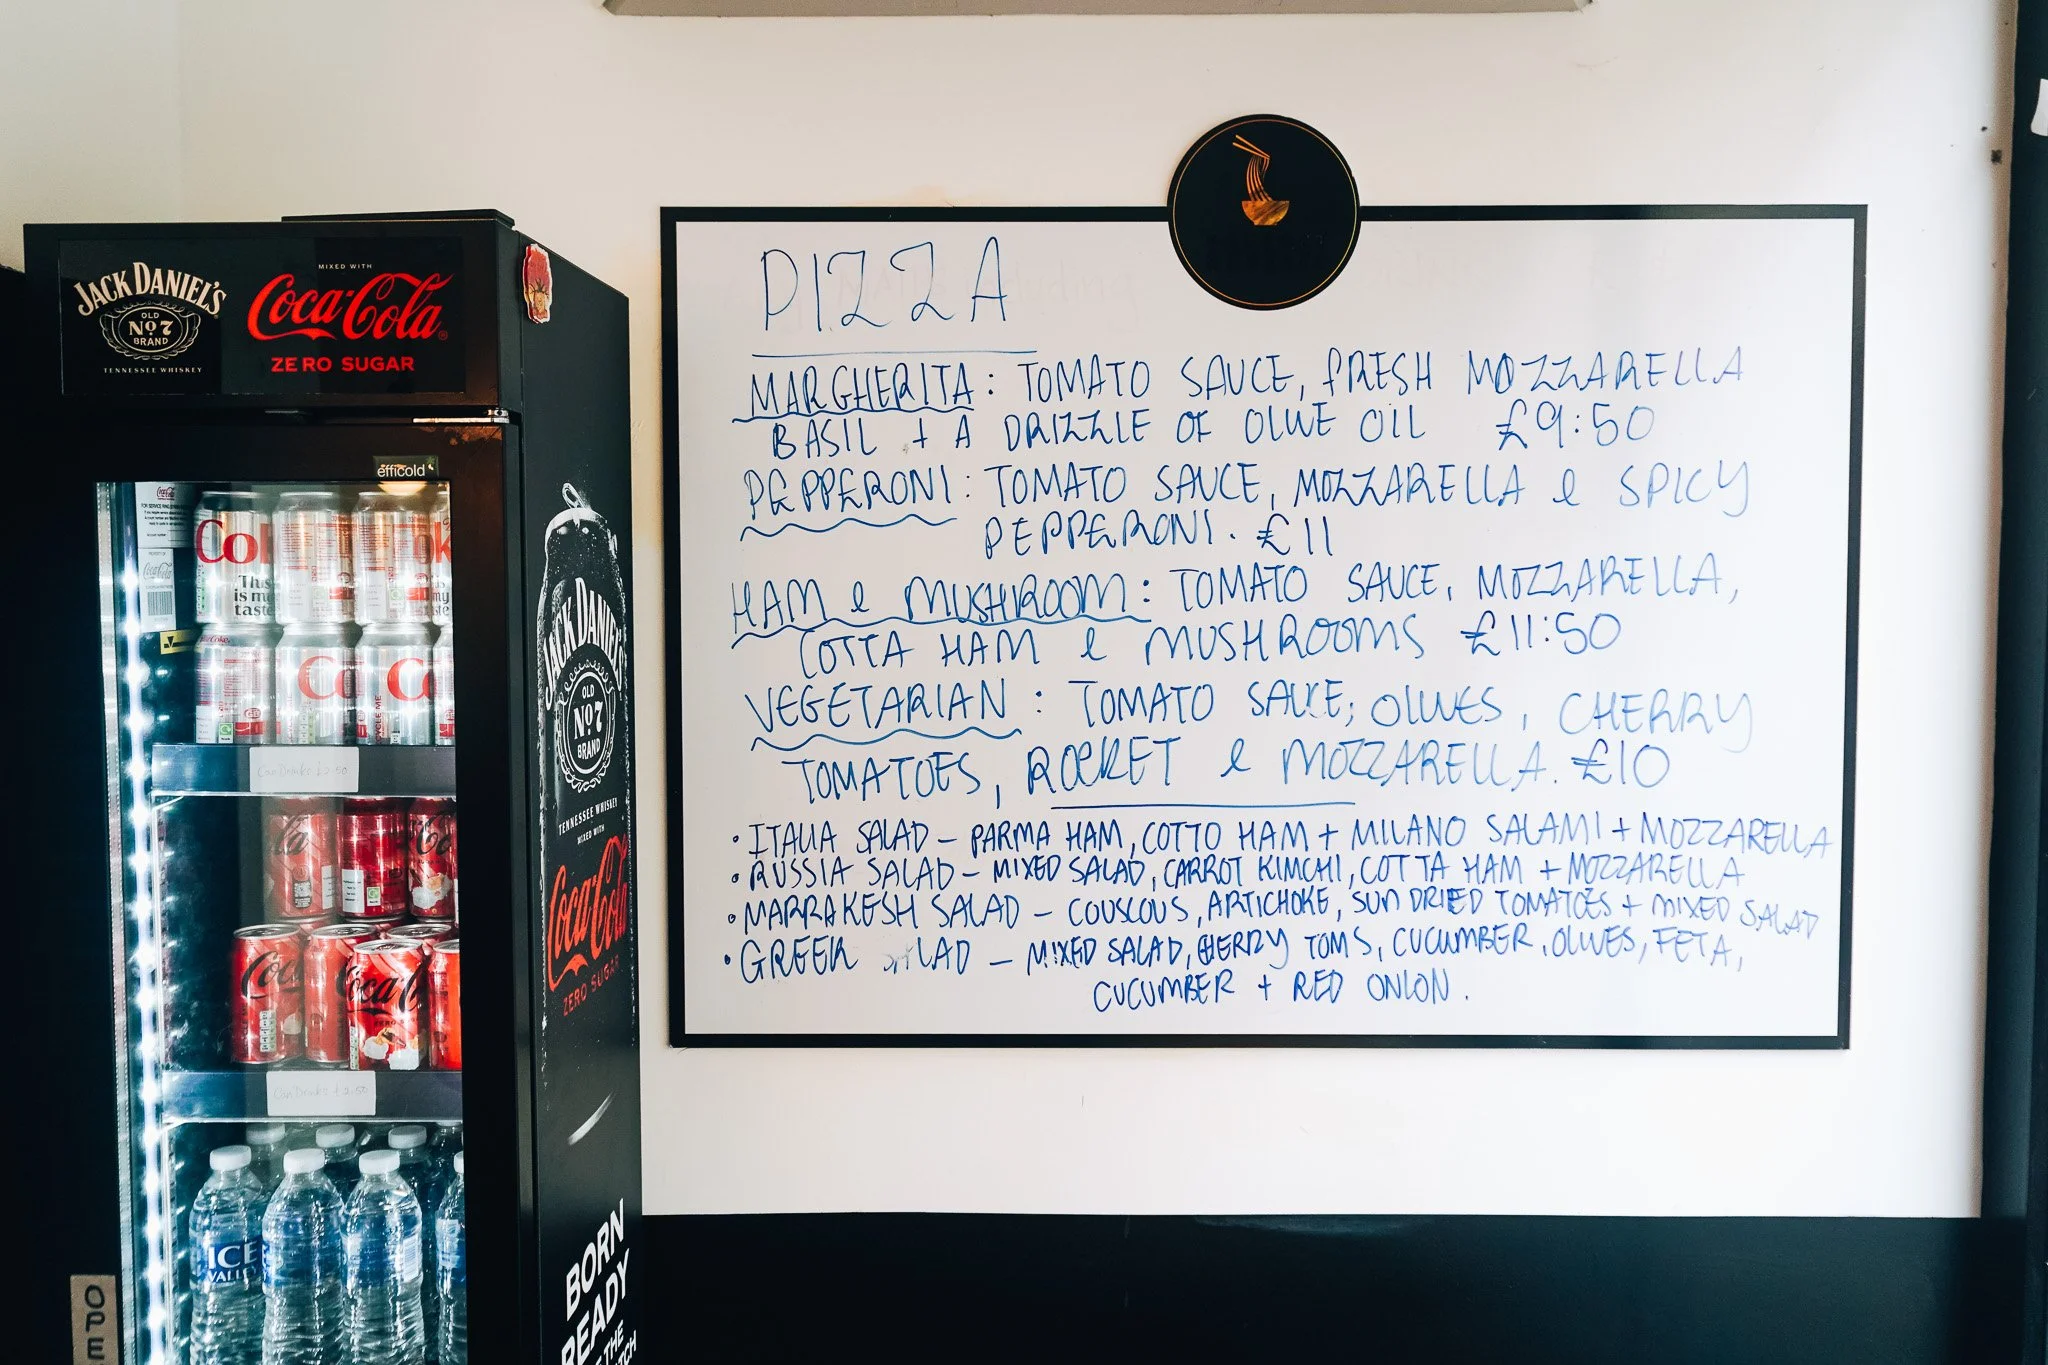 PIZZA
MARGHERITA: TOMATO SAUCE, FRESH MOZZARELLA
BASIL + A DRIZZLE OF OLIVE OIL £9:50
PEPPERONI: TOMATO SAUCE, MOZZARELLA & SPICY
PEPPERONI. £11
HAM & MUSHROOM: TOMATO SAUCE, MOZZARELLA,
COTTA HAM & MUSHROOMS £11:50
VEGETARIAN: TOMATO SAUCE, OLIVES, CHERRY
TOMATOES, ROCKET & MOZZARELLA. £10
• ITALIA SALAD – PARMA HAM, COTTO HAM + MILANO SALAMI + MOZZARELLA
• RUSSIA SALAD – MIXED SALAD, CARROT KIMCHI, COTTA HAM + MOZZARELLA
• MARRAKESH SALAD – COUSCOUS, ARTICHOKE, SUN DRIED TOMATOES + MIXED SALAD
• GREEK SALAD – MIXED SALAD, CHERRY TOMS, CUCUMBER, OLIVES, FETA,
CUCUMBER + RED ONION.
JACK DANIEL'S
OLD
No. 7
BRAND
TENNESSEE WHISKEY
MIXED WITH
Coca-Cola
ZERO SUGAR
efficold
Col
This
is my
taste
Can Drinks £2.50
Coca
Can Drinks £2.50
ICE
VALLEY
OPE
JACK DANIEL'S
OLD
No. 7
BRAND
TENNESSEE WHISKEY
MIXED WITH
Coca-Cola
ZERO SUGAR
BORN
READY
THE